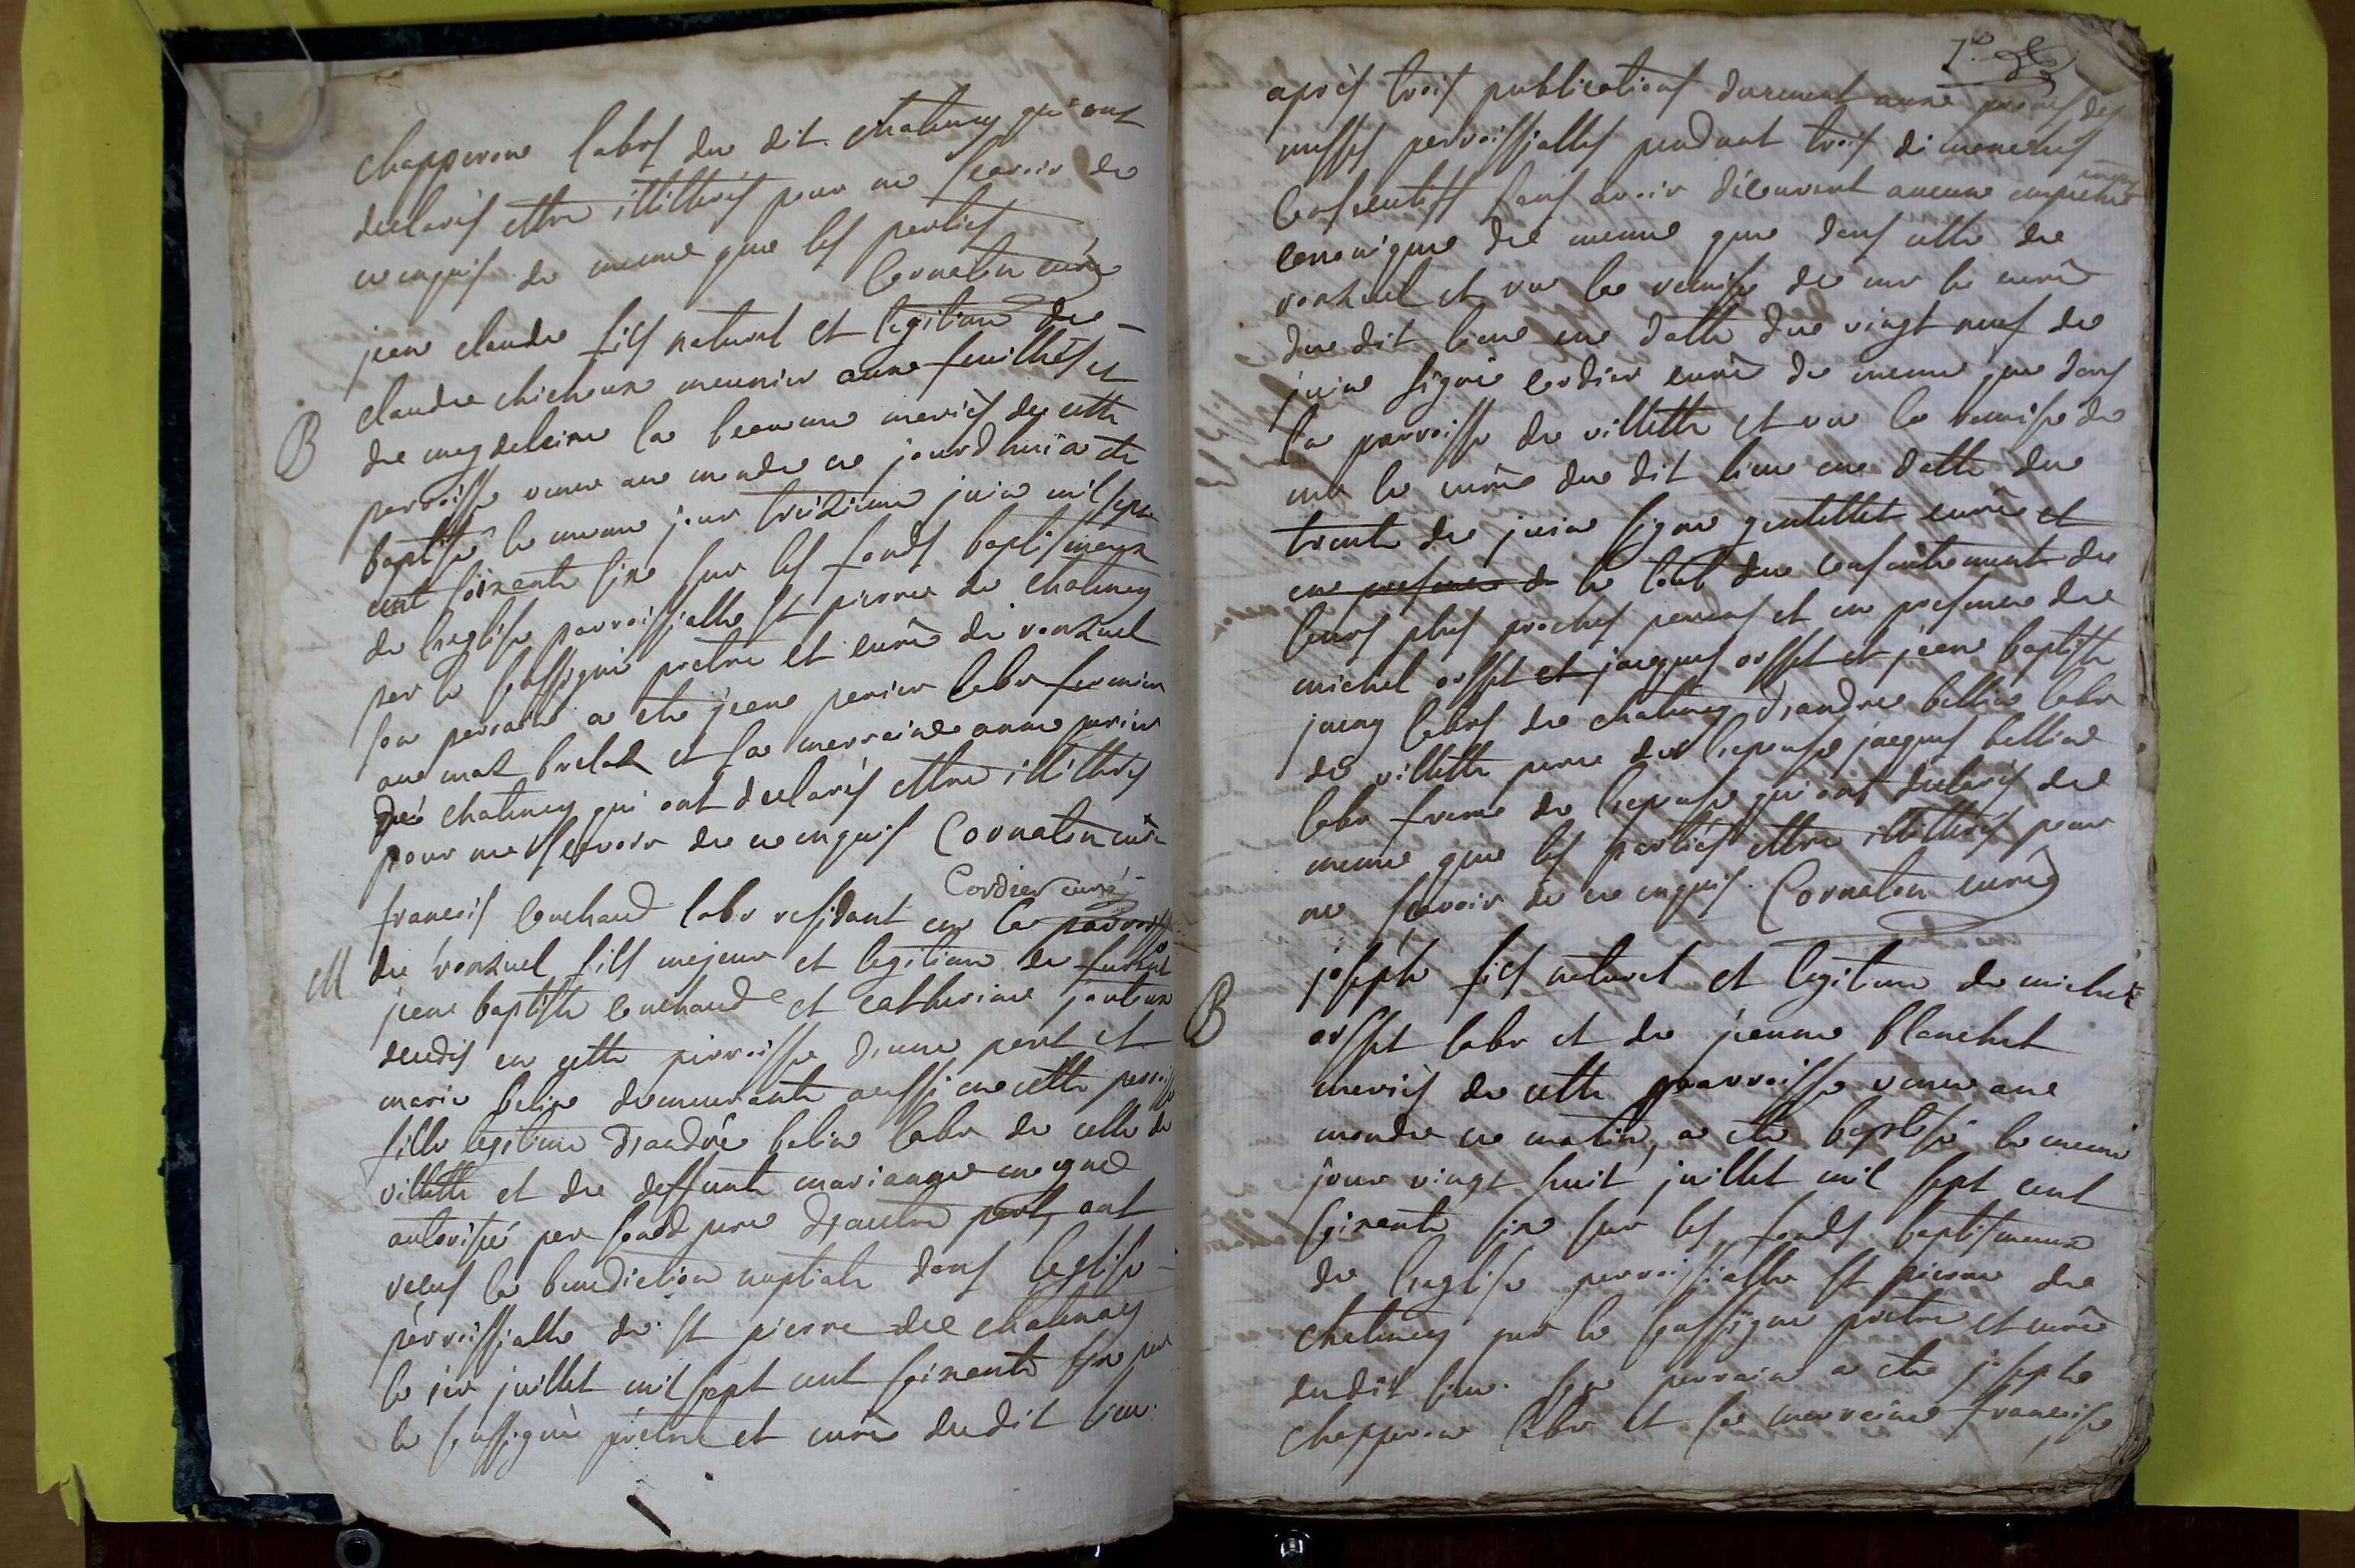 chapperon labrs du dit chatenay qui ont
declarés ettre illitterés pour ne scavoir de
ce enquis de meme que les parties
Cornaton curé
jean claude fils naturel et legitime de
claude chicheux meunier aux feuilleés et
B
de magdeleine la beaume mariés de cette
parroisse venu au monde ce jourd huî a ete
baptisé le meme jour treizieme juin mil sept
cent soixante six sur les fonds baptismaux
de l'eglise parroissialle st pierre de chatenay
par le soussigné pretre et curé de ronzuel
son parrain a ete jean perier labr fermier
au mas brelat et sa marraine anne perier
de chatenay qui ont declarés ettre illitterés
pour ne scavoir de ce enquis Cornaton curé
Cordier curé
francois cuchaud labr residant en la parroisse
M
de ronzuel fils majeur et legitime de
jean baptiste cuchaud et catherine
decedés en cette parroisse d'une part et
marie belin demeurante aussi en cette parroisse
fille legitime d'andré belin labr de celle de
villette et de deffunte marianne
autorisée par son pere d'autre part, ont
receus la benediction nuptiale dans leglise
parroissialle de st pierre de chatenay
le ier juillet mil sept cent soixante six par
le soussigné pretre et curé dudit lieu.
après trois publications dument aux prones des
messes parroissialles pendant trois dimanches
consecutifs sans avoir découvert aucun empeche
ment
canonique de meme que dans celle de
ronzuel et vu la remise de mr le curé
du dit lieu en datte du vingt neuf de
juin signé cordier curé de meme que dans
la parroisse de villette et vu la remise de
mr le curé du dit lieu en datte du
trente de juin signé gentillet curé et
en presence de le tout du consentement de
leurs plus proches parens et en presence de
michel osset et jacques osset et jean baptiste
labrs de chatenay d'andré bellin labr
de villette pere de l'epouse jacques bellin
labr frere de l'epouse qui ont declarés de
meme que les parties ettre illitterés pour
ne scavoir de ce enquis. Cornaton curé
joseph fils naturel et legitime de michel
B
osset labr et de jeanne blanchet
mariés de cette parroisse venu au
monde ce matin, a ete baptisé le meme
jour vingt huit juillet mil sept cent
soixante six sur les fonds baptismaux
de l'eglise parroissialle st pierre de
chatenay par le soussigné pretre et curé
dudit lieu. son parrain a ete joseph
chapperon labr et sa marraine francoise